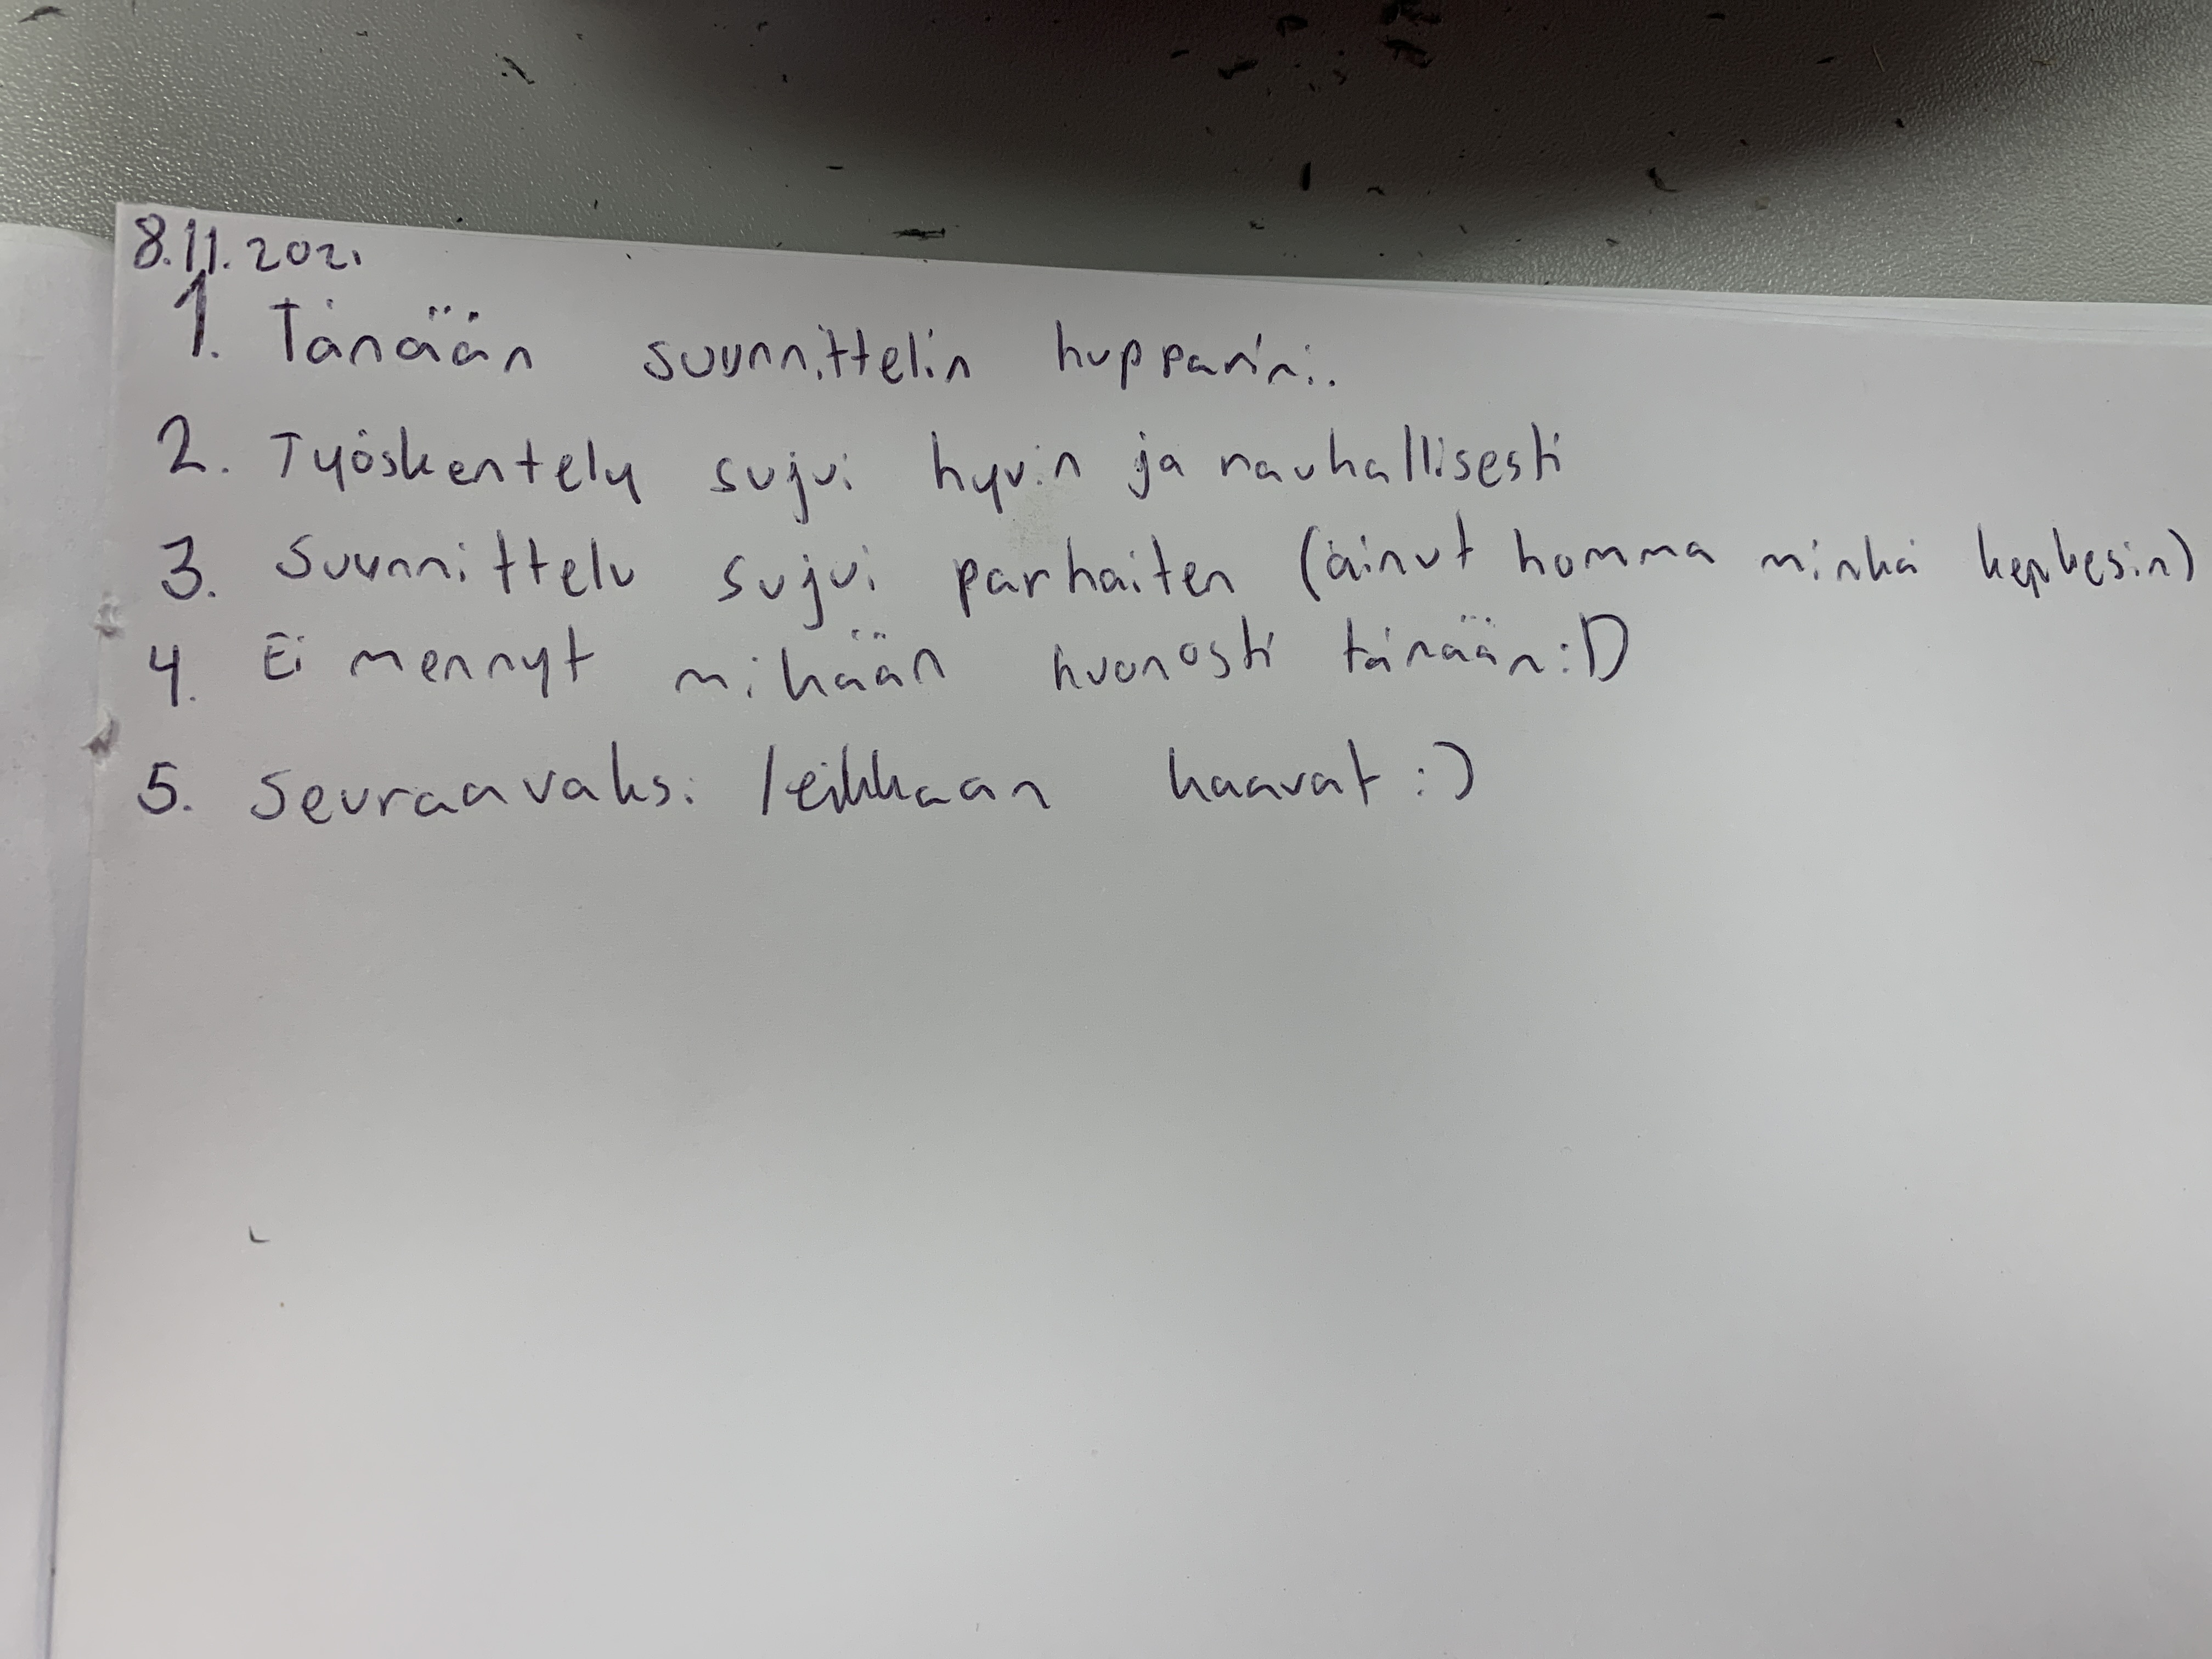 8.11.2021
1. Tänään suunnittelin hupparini.
2. Työskentely sujui hyvin ja rauhallisesti
3. Suunnittelu sujui parhaiten (ainut homma minkä kerkesin)
4. Ei mennyt mikään huonosti tänään :D
5. Seuraavaksi leikkaan kaavat :)